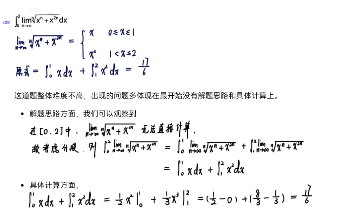 ∫₀² lim_{n→∞} ⁿ√(xⁿ + x²ⁿ) dx
lim_{n→∞} ⁿ√(xⁿ + x²ⁿ) = { x  0≤x≤1
x²  1<x≤2
原式 = ∫₀¹ x dx + ∫₁² x² dx = 17/6
这道题整体难度不高，出现的问题多体现在最开始没有解题思路和具体计算上。
• 解题思路方面，我们可以观察到
在[0,2]中，lim_{n→∞} ⁿ√(xⁿ + x²ⁿ) 无法直接计算，
故考虑分段，则 ∫₀² lim_{n→∞} ⁿ√(xⁿ + x²ⁿ) = ∫₀¹ lim_{n→∞} ⁿ√(xⁿ + x²ⁿ) + ∫₁² lim_{n→∞} ⁿ√(xⁿ + x²ⁿ)
= ∫₀¹ x dx + ∫₁² x² dx
• 具体计算方面，
∫₀¹ x dx + ∫₁² x² dx = ½ x² |₀¹ + ⅓ x³ |₁² = (½ - 0) + (8/3 - ⅓) = 17/6